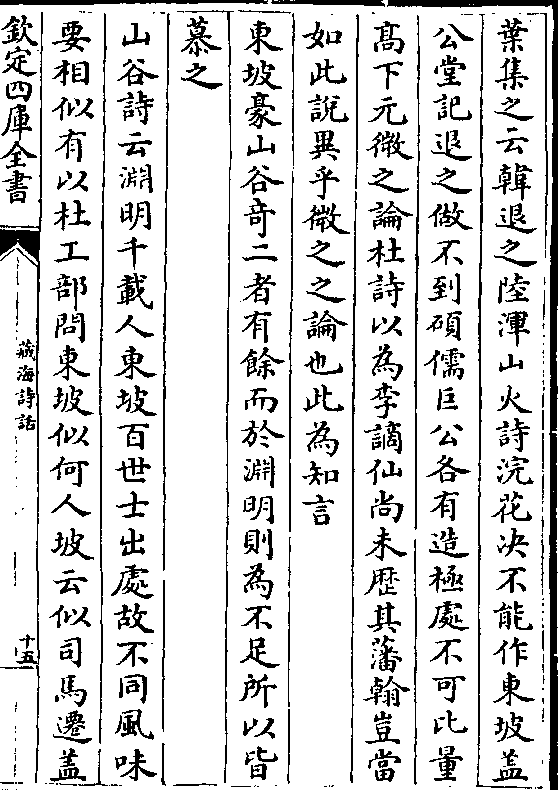 葉集之云韓退之陸渾山火詩浣花决不能作東坡盖
公堂記退之做不到碩儒巨公各有造極處不可比量
髙下元微之論杜詩以為李謫仙尚未歴其藩翰豈當
如此說異乎微之之論也此為知言
東坡豪山谷竒二者有餘而於淵明則為不足所以皆
慕之
山谷詩云淵明千載人東坡百世士出處故不同風味
要相似有以杜工部問東坡似何人坡云似司馬遷盖
欽定四庫全書
藏海詩話
十五